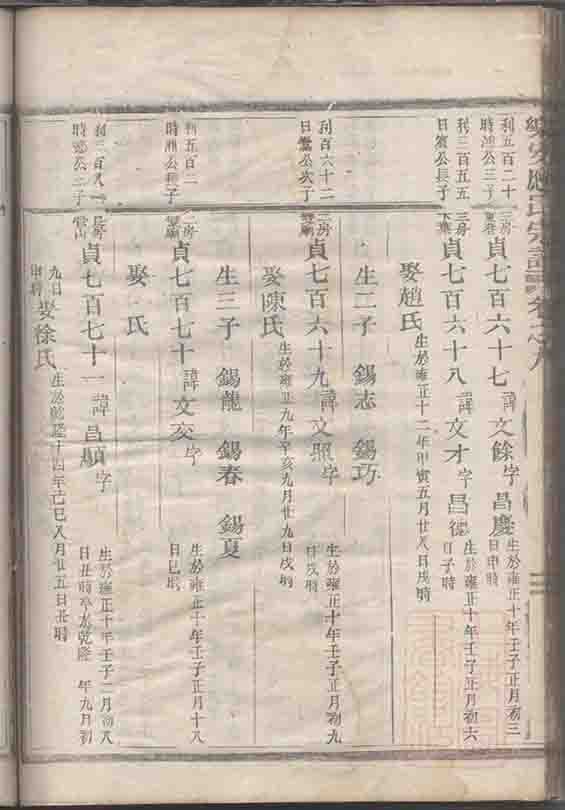 氏宗譜 卷之八
利五百二十
時鴻公三子
三房
貞七百六十七 諱文餘 字昌慶 生於雍正十年壬子正月初三
日申時
利三百五五
日賓公長子
三房
貞七百六十八 諱文才 字昌德 生於雍正十年壬子正月初六
日子時
娶趙氏 生於雍正十二年甲寅五月廿八日戌時
生二子 錫志 錫巧
利百六十二
日鸞公次子
三房
貞七百六十九 諱文照 字 生於雍正十年壬子正月初九
日戌時
娶陳氏 生於雍正九年辛亥九月廿九日戌時
生三子 錫龍 錫春 錫夏
利五百二
時 公長子
二房
貞七百七十 諱文 字 生於雍正十年壬子正月十八
日巳時
娶 氏
利三百八一
時 公三子
房
貞七百七十一 諱昌顯 字 生於雍正十年壬子二月初八
日丑時卒於乾隆 年九月初
九日
申時
娶徐氏 生於乾隆十四年己巳八月廿五日丑時